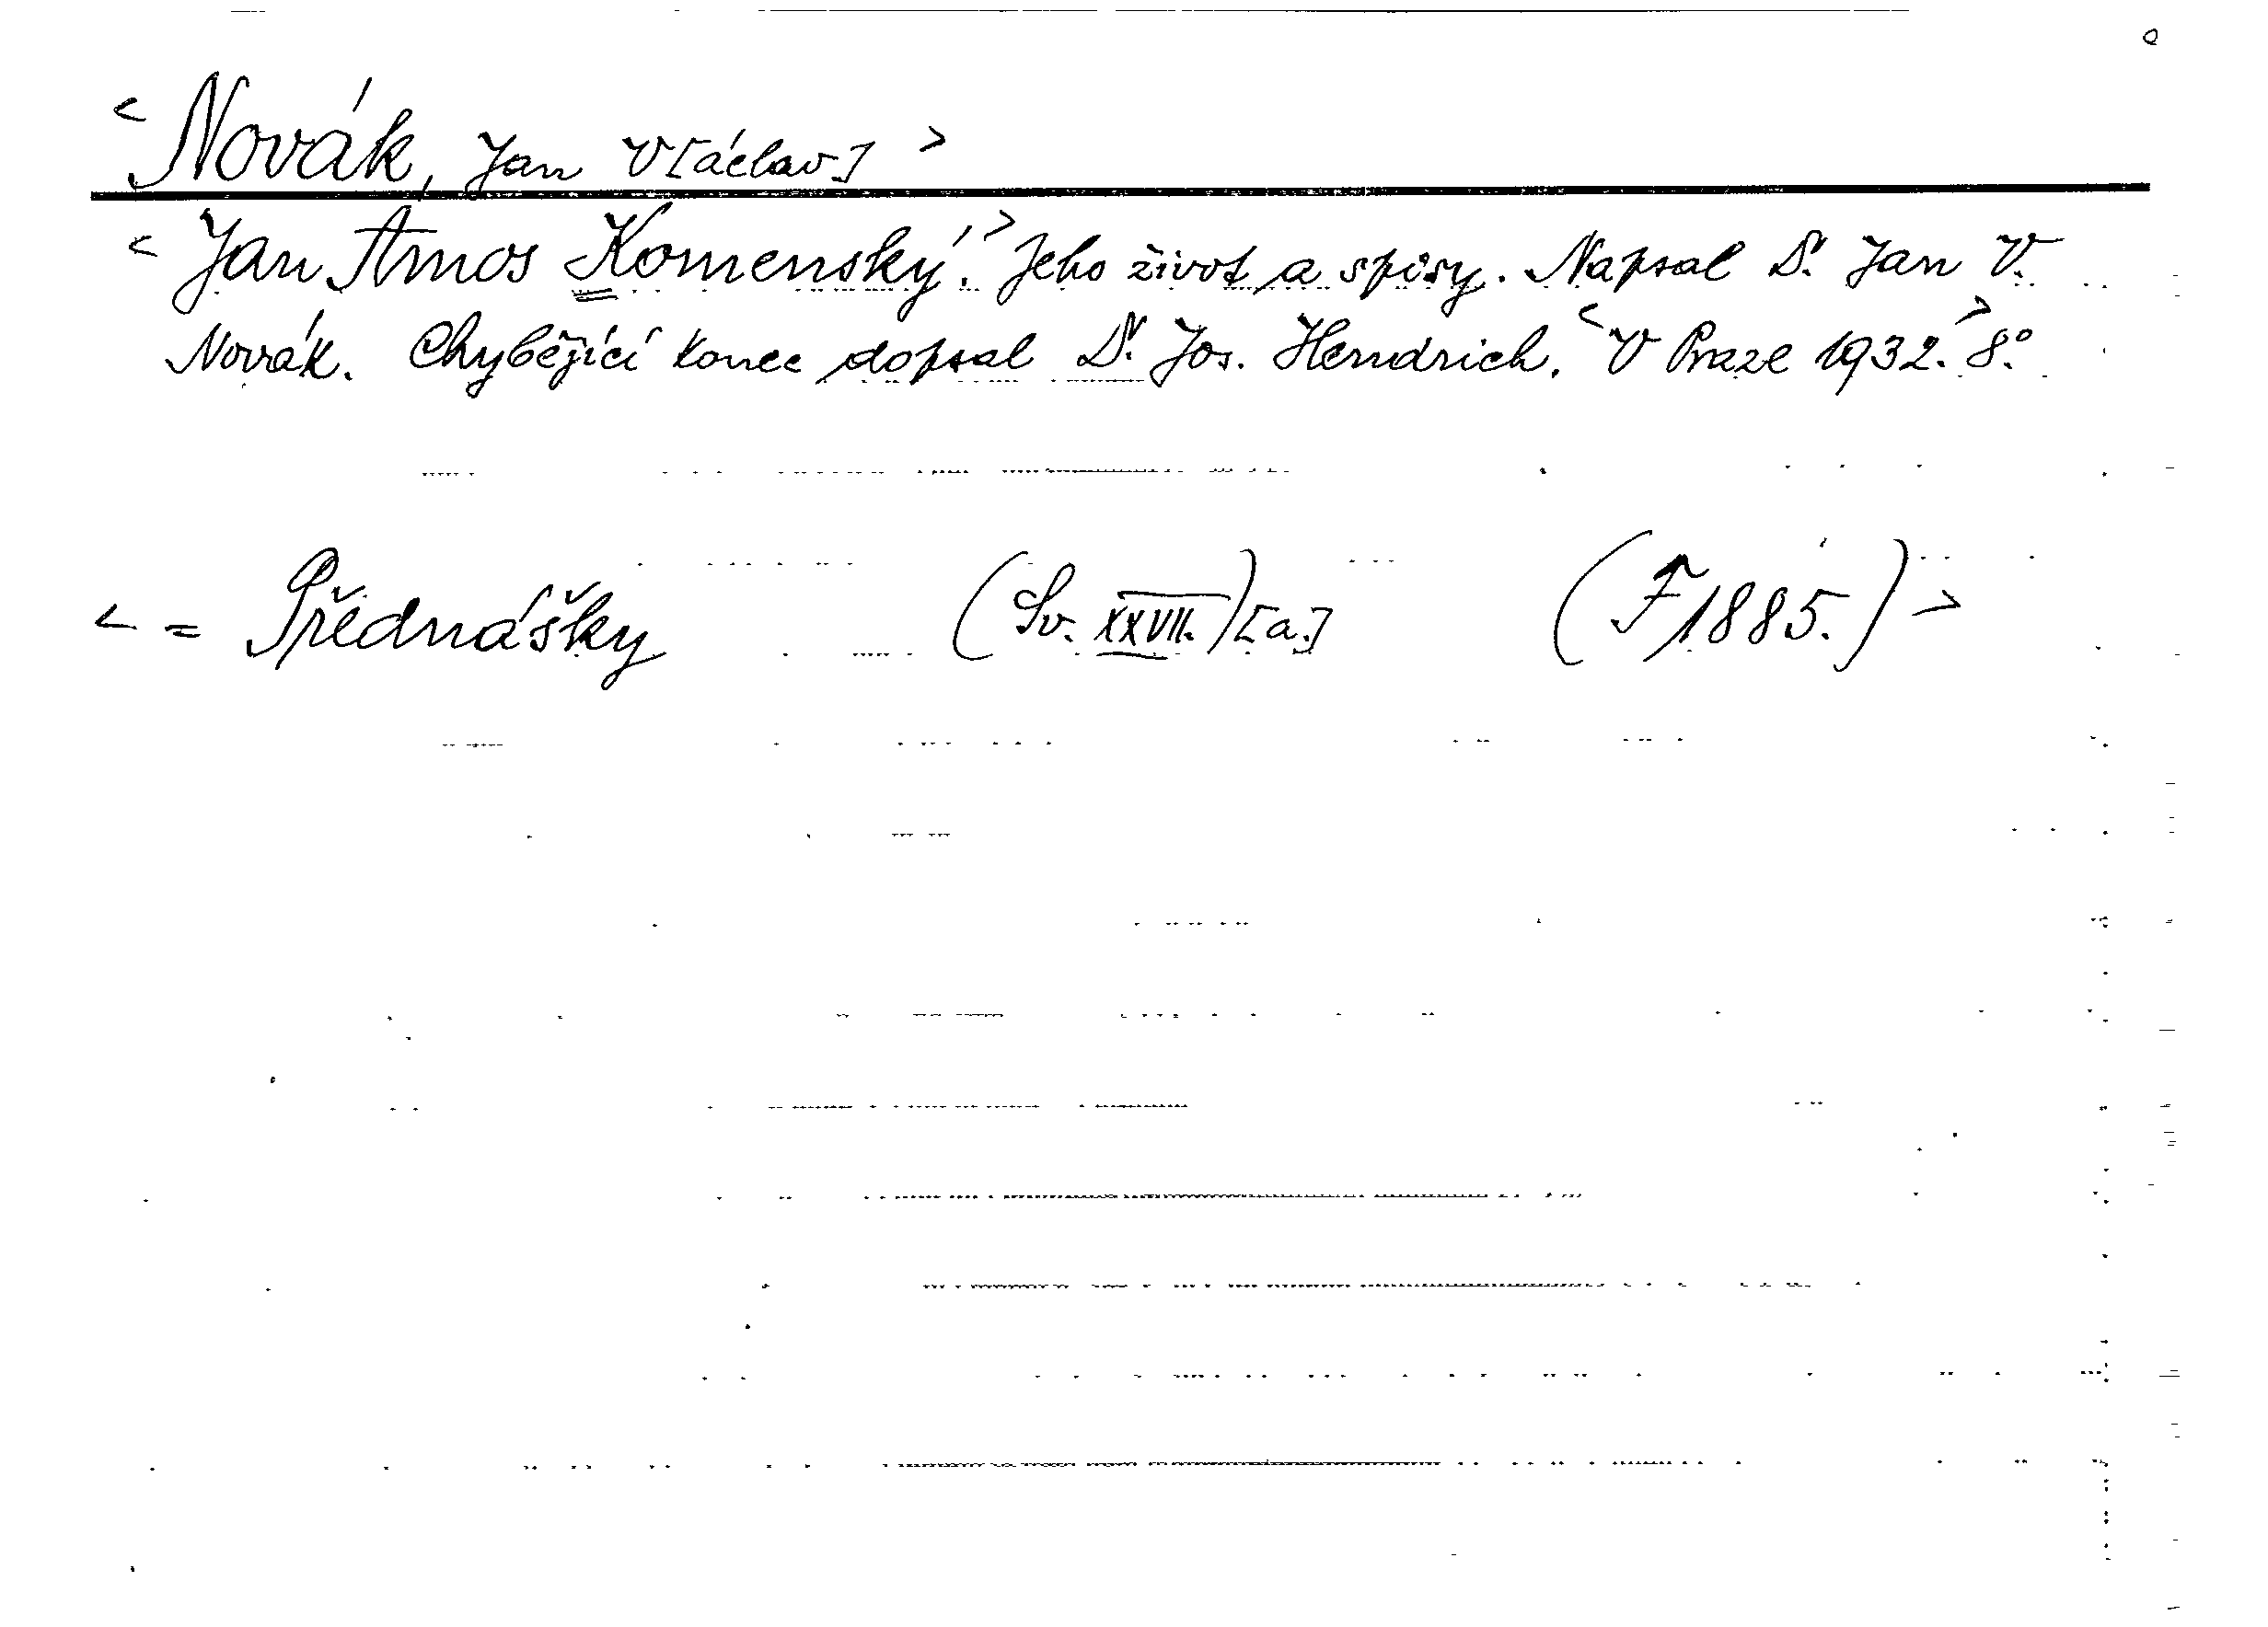 < Novák, Jan V[áclav] >
< Jan Amos Komenský. > Jeho život a spisy. Napsal Dr. Jan V.
Novák. Chybějící konec dopsal Dr. Jos. Hendrich. < V Praze 1932. > 8°.
< = Přednášky (Sv. XXVII.) [a.] (F 1885.) >